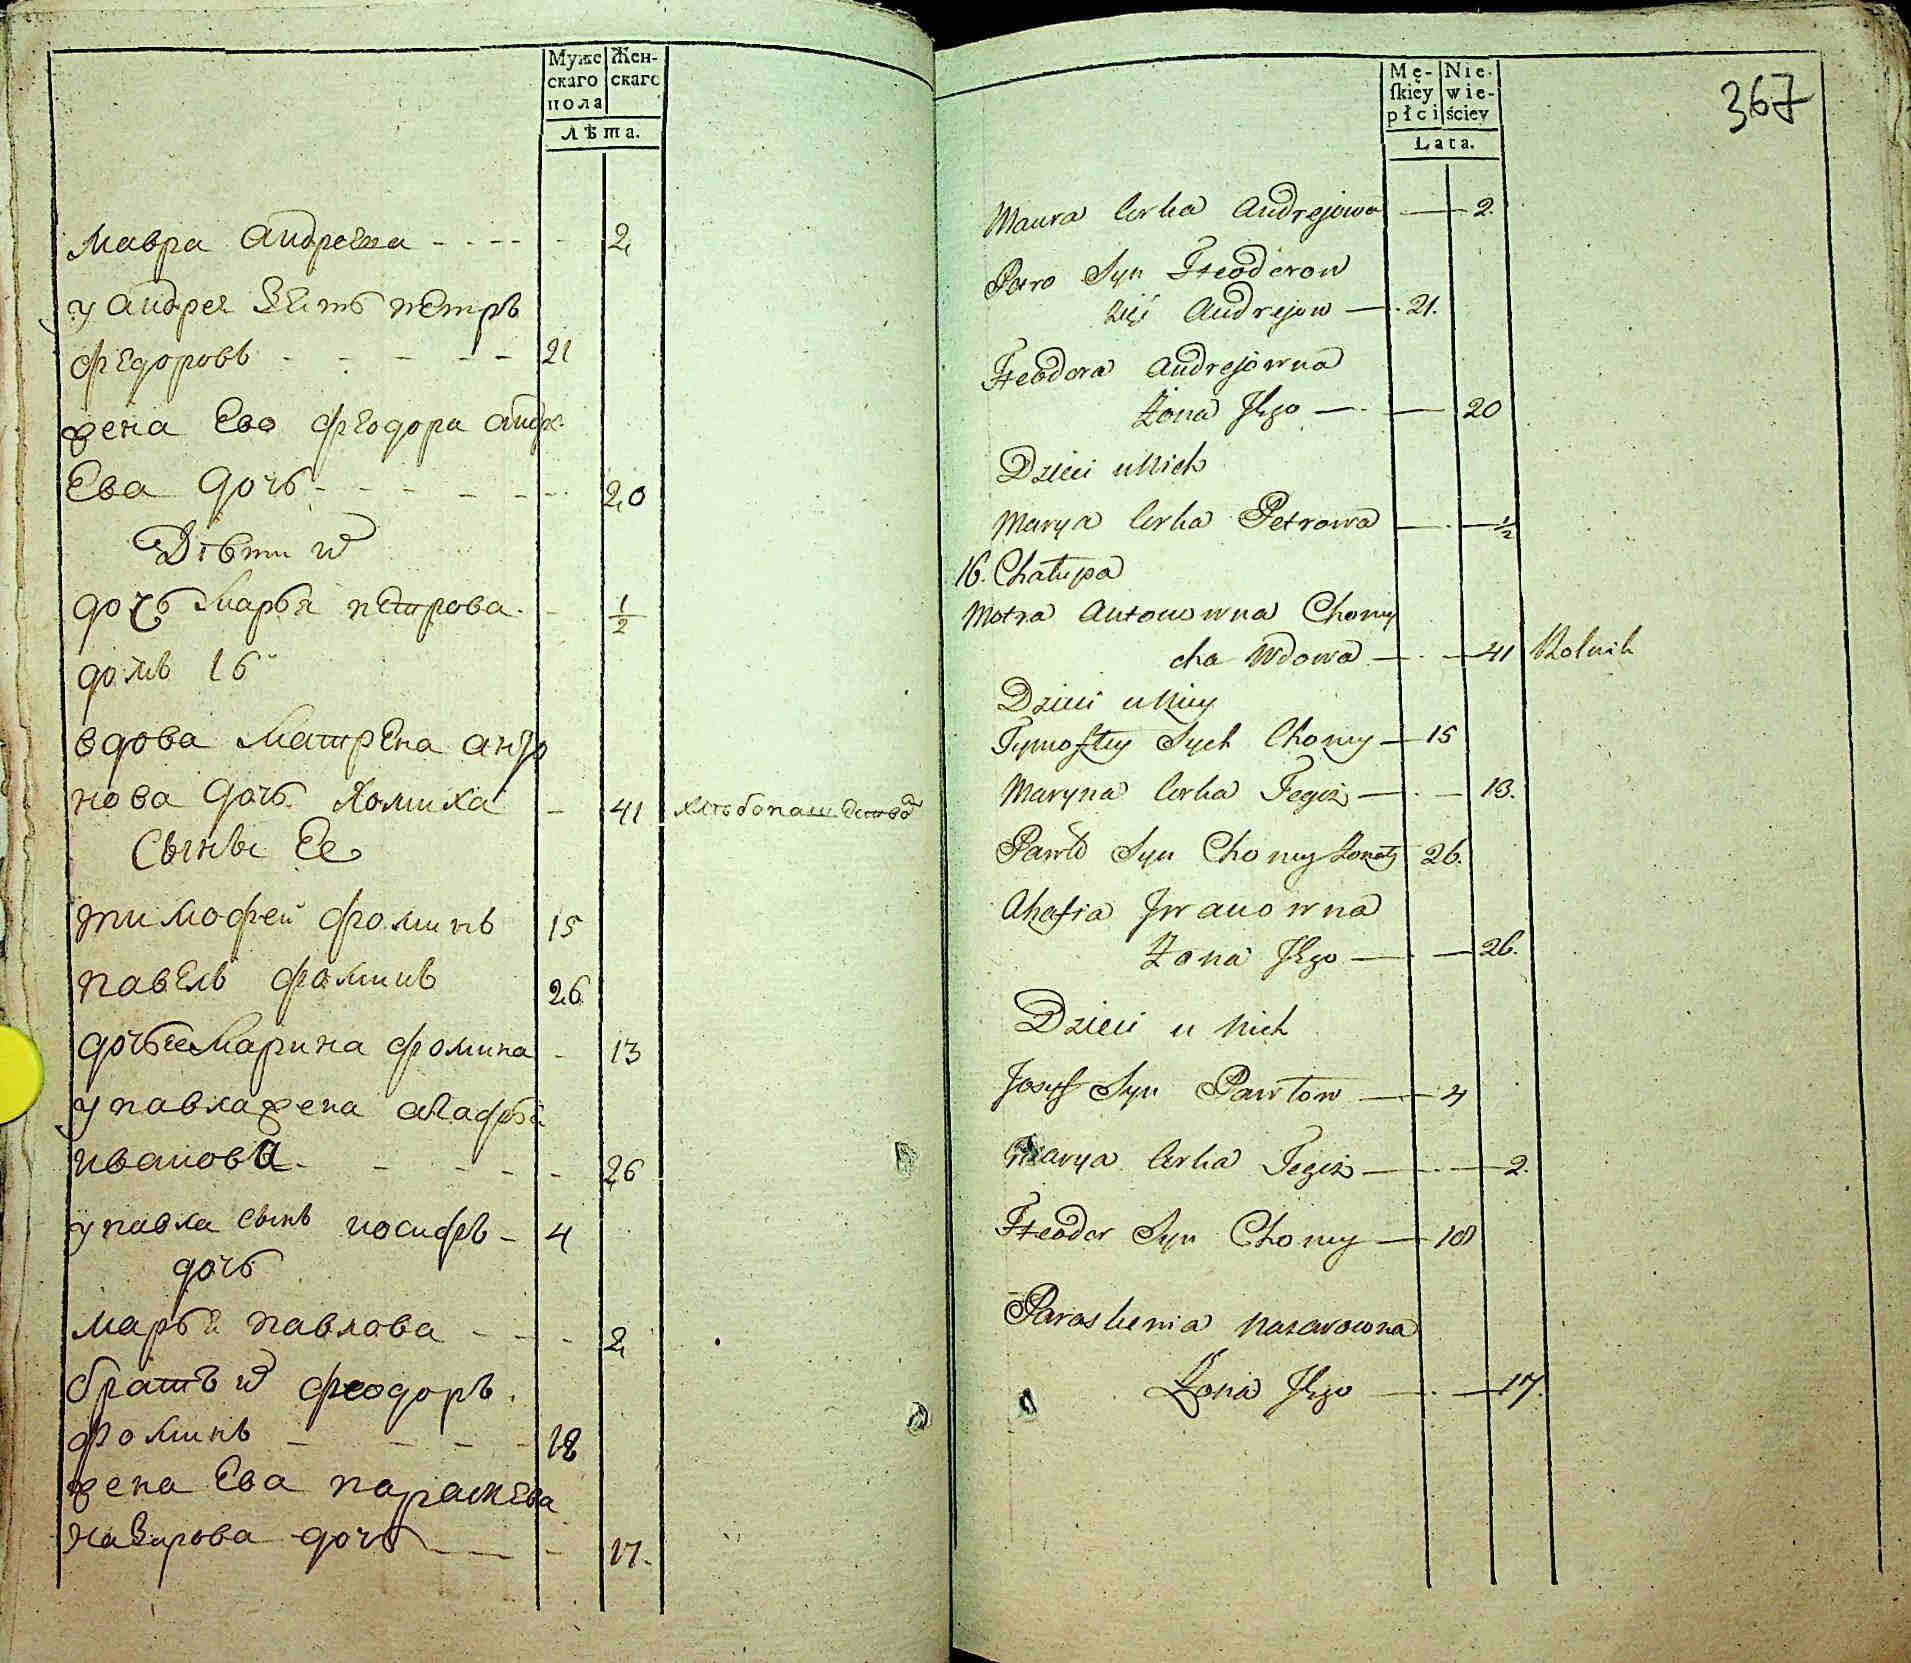 Муже Жен-
скаго скаго
пола
лѣта.
мавра андреева - - - - - 2
у андрея зять петръ
федоровъ - - - - - 21
жена Ево феодора андре
Ева дочь - - - - - 20
Дѣти их
дочь марья петрова - - 1/2
домъ 16
вдова матрена анто
нова дочь хомиха - 41 хлѣбопашество
Сыны Ее
тимофей фоминъ 15
павелъ фоминъ 26
дочь ее марина фомина - 13
у павла жена агафья
иванова - - - - - 26
у павла сынъ иосифъ - 4
дочь
марья павлова - - - 2
братъ их феодоръ
фоминъ - - - - 18
жена Ева параскева
назарова дочь - - - 17.
Mę- Nie-
skiey wie-
płci ściey
Lata.
367
Maura Corka Andrejowa — 2.
Petro Syn Fteodorow
Zięć Andrejow — 21.
Fteodora Andrejowna
Żona Jego — — 20
Dzieci u Nich
Marya Corka Petrowa — — 1/2
16. Chałupa
Motra Antonowna Chomi
cha Wdowa — — 41 Rolnik
Dzieci u Niey
Tymoftey Syn Chomy — 15
Maryna Corka Tegoż — — 13.
Pawło Syn Chomy Żonaty 26.
Ahafia Jwanowna
Żona Jego — — 26.
Dzieci u Nich
Jozef Syn Pawłow — 4
Marya Corka Tegoż — — 2.
Fteodor Syn Chomy — 18
Paraskewia Nazarowna
Żona Jego — — 17.